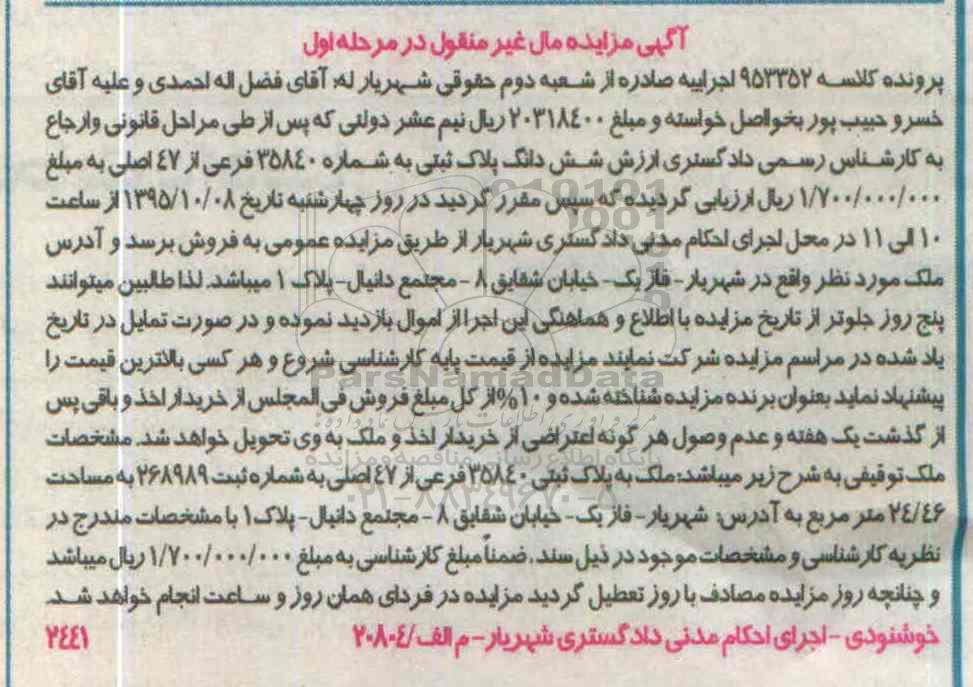 آگهی مزایده مال غیر منقول در مرحله اول
پرونده کلاسه ۹۵۳۳۵۲ اجراییه صادره از شعبه دوم حقوقی شهریار له: آقای فضل اله احمدی و علیه آقای
خسرو حبیب پور بخواصل خواسته و مبلغ ۲۰۳۱۸۴۰۰ ریال نیم عشر دولتی که پس از طی مراحل قانونی وارجاع
به کارشناس رسمی دادگستری ارزش شش دانگ پلاک ثبتی به شماره ۳۵۸۴۰ فرعی از ۴۷ اصلی به مبلغ
۱/۷۰۰/۰۰۰/۰۰۰ ریال ارزیابی گردیده که سپس مقرر گردید در روز چهارشنبه تاریخ ۱۳۹۵/۱۰/۰۸ از ساعت
۱۰ الی ۱۱ در محل اجرای احکام مدنی دادگستری شهریار از طریق مزایده عمومی به فروش برسد و آدرس
ملک مورد نظر واقع در شهریار- فاز یک- خیابان شقایق ۸ - مجتمع دانیال- پلاک ۱ میباشد. لذا طالبین میتوانند
پنج روز جلوتر از تاریخ مزایده با اطلاع و هماهنگی این اجرا از اموال بازدید نموده و در صورت تمایل در تاریخ
یاد شده در مراسم مزایده شرکت نمایند مزایده از قیمت پایه کارشناسی شروع و هر کسی بالاترین قیمت را
پیشنهاد نماید بعنوان برنده مزایده شناخته شده و ۱۰% از کل مبلغ فروش فی المجلس از خریدار اخذ و باقی پس
از گذشت یک هفته و عدم وصول هر گونه اعتراضی از خریدار اخذ و ملک به وی تحویل خواهد شد. مشخصات
ملک توقیفی به شرح زیر میباشد: ملک به پلاک ثبتی ۳۵۸۴۰ فرعی از ۴۷ اصلی به شماره ثبت ۲۶۸۹۸۹ به مساحت
۲۴/۴۶ متر مربع به آدرس: شهریار- فاز یک- خیابان شقایق ۸ - مجتمع دانیال- پلاک ۱ با مشخصات مندرج در
نظریه کارشناسی و مشخصات موجود در ذیل سند. ضمناً مبلغ کارشناسی به مبلغ ۱/۷۰۰/۰۰۰/۰۰۰ ریال میباشد
و چنانچه روز مزایده مصادف با روز تعطیل گردید مزایده در فردای همان روز و ساعت انجام خواهد شد.
خوشنودی - اجرای احکام مدنی دادگستری شهریار - م الف/۲۰۸۰۴
۲۴۴۱
ParsNamadData
پایگاه اطلاع رسانی مناقصه و مزایده
۰۲۱-۸۸۳۴۹۶۷۰-۸